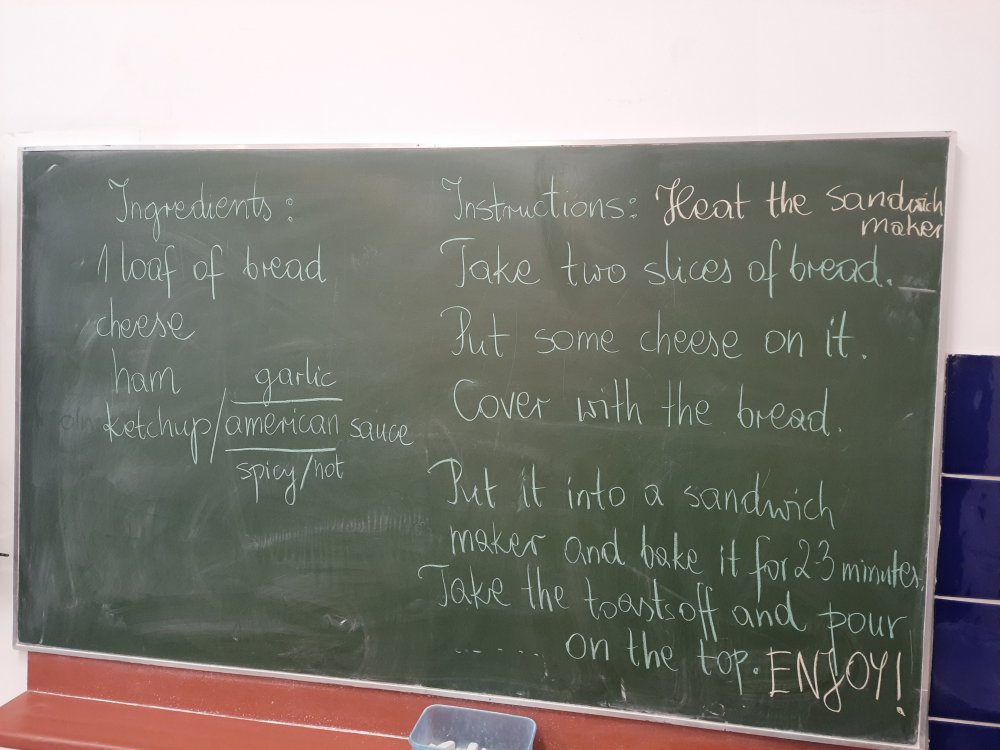 Ingredients:
1 loaf of bread
cheese
ham
garlic
ketchup/american sauce
spicy/hot
Instructions: Heat the sandwich
maker
Take two slices of bread.
Put some cheese on it.
Cover with the bread.
Put it into a sandwich
maker and bake it for 2-3 minutes.
Take the toasts off and pour
...... on the top. ENJOY!